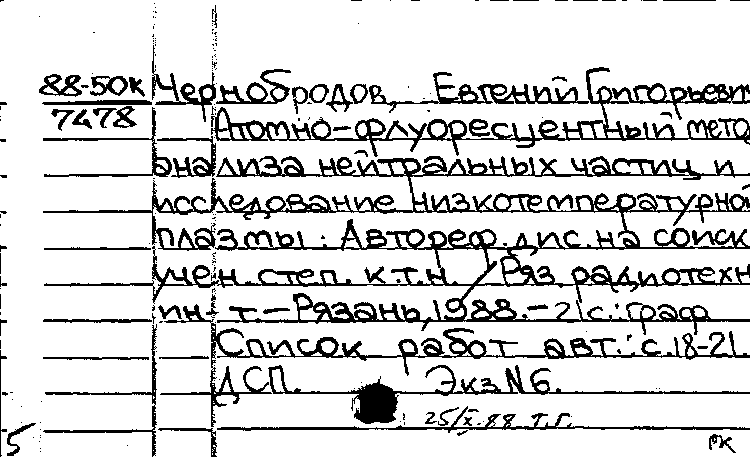 88-50К Чернобродов, Евгений Григорьевич
7478 Атомно-флуоресцентный метод
анализа нейтральных частиц и
исследование низкотемпературной
плазмы : Автореф. дис. на соиск.
учен. степ. к.т.н. / Ряз. радиотехн.
ин-т. — Рязань, 1988. — 21 с. : граф.
Список работ авт.: с. 18-21.
ДСП. Экз N6.
25/X.88 т.г.
5 РК